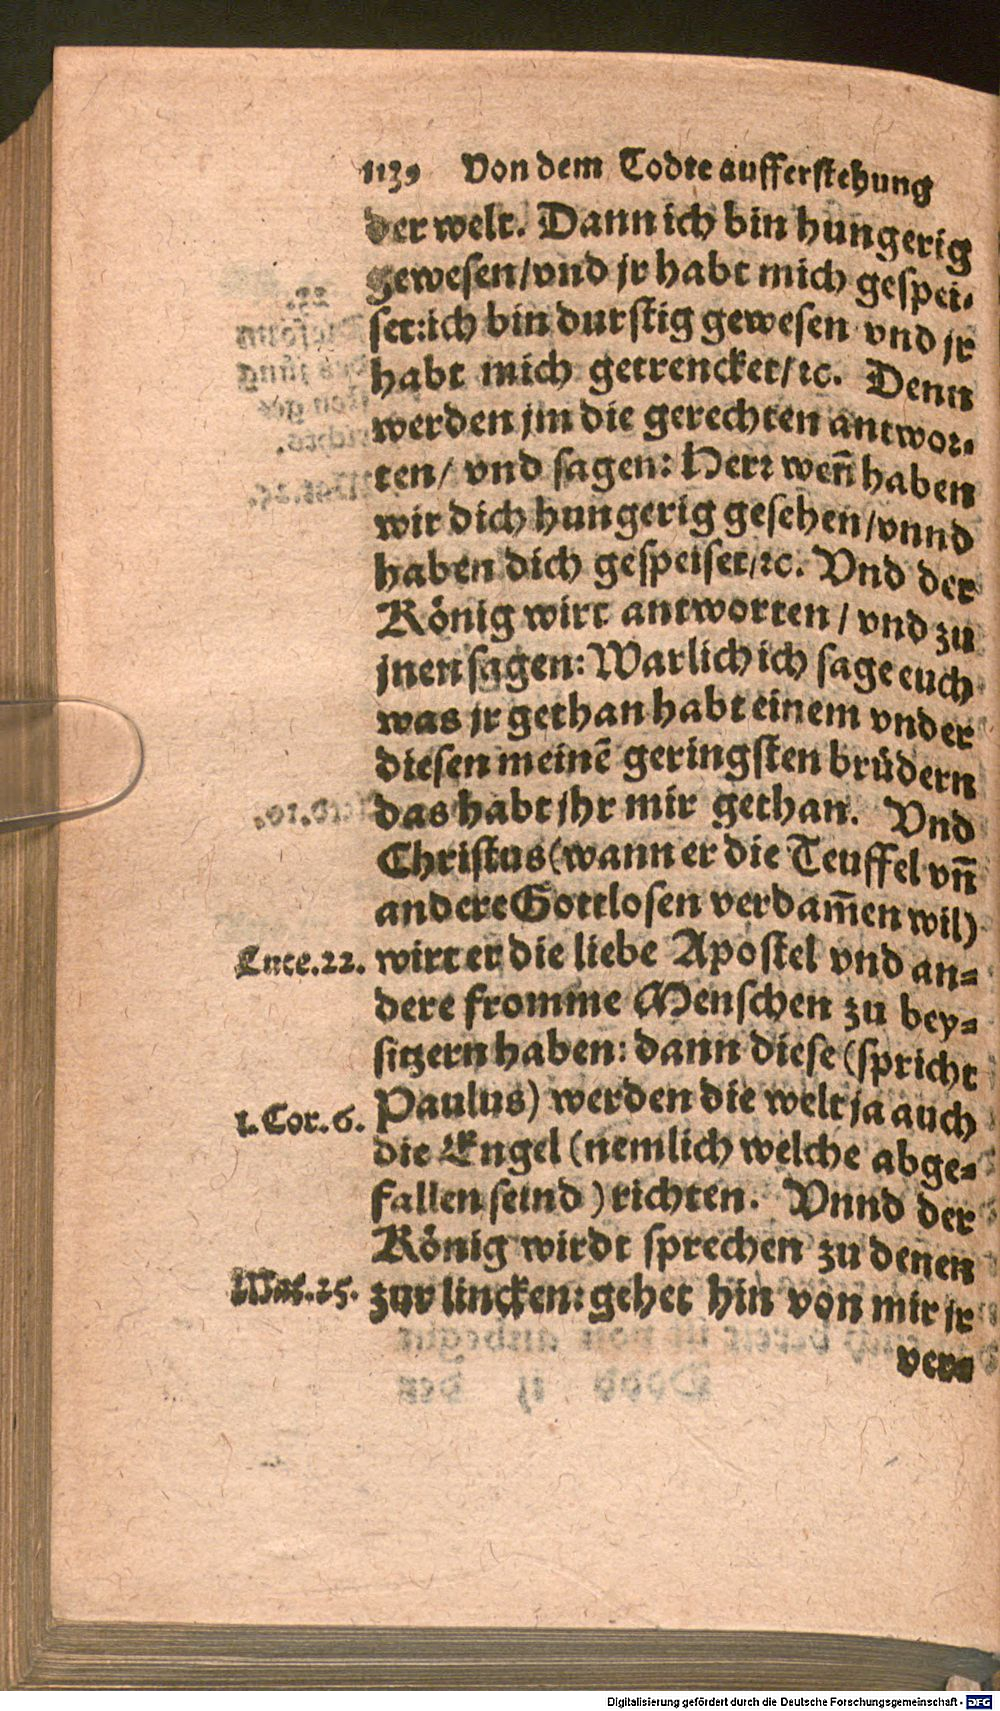 1139 Von dem Todte aufferstehung
der welt. Dann ich bin hungerig
gewesen/vnd jr habt mich gespei-
set:ich bin durstig gewesen vnd jr
habt mich getrencket/ꝛc. Denn
werden jm die gerechten antwor-
ten/ vnd sagen: Herr wen̄ haben
wir dich hungerig gesehen/vnnd
haben dich gespeiset/ꝛc. Vnd der
König wirt antworten/ vnd zu
jnen sagen: Warlich ich sage euch
was jr gethan habt einem vnder
diesen meinē geringsten brüdern
das habt jhr mir gethan. Vnd
Christus (wann er die Teuffel vn̄
andere Gottlosen verdam̄en wil)
Luce.22. wirt er die liebe Apostel vnd an-
dere fromme Menschen zu bey-
sitzern haben: dann diese (spricht
1.Cor.6. Paulus) werden die welt ja auch
die Engel (nemlich welche abge-
fallen seind) richten. Vnnd der
König wirdt sprechen zu denen
Mat.25. zur lincken: gehet hin von mir jr
ver-
Digitalisierung gefördert durch die Deutsche Forschungsgemeinschaft - DFG